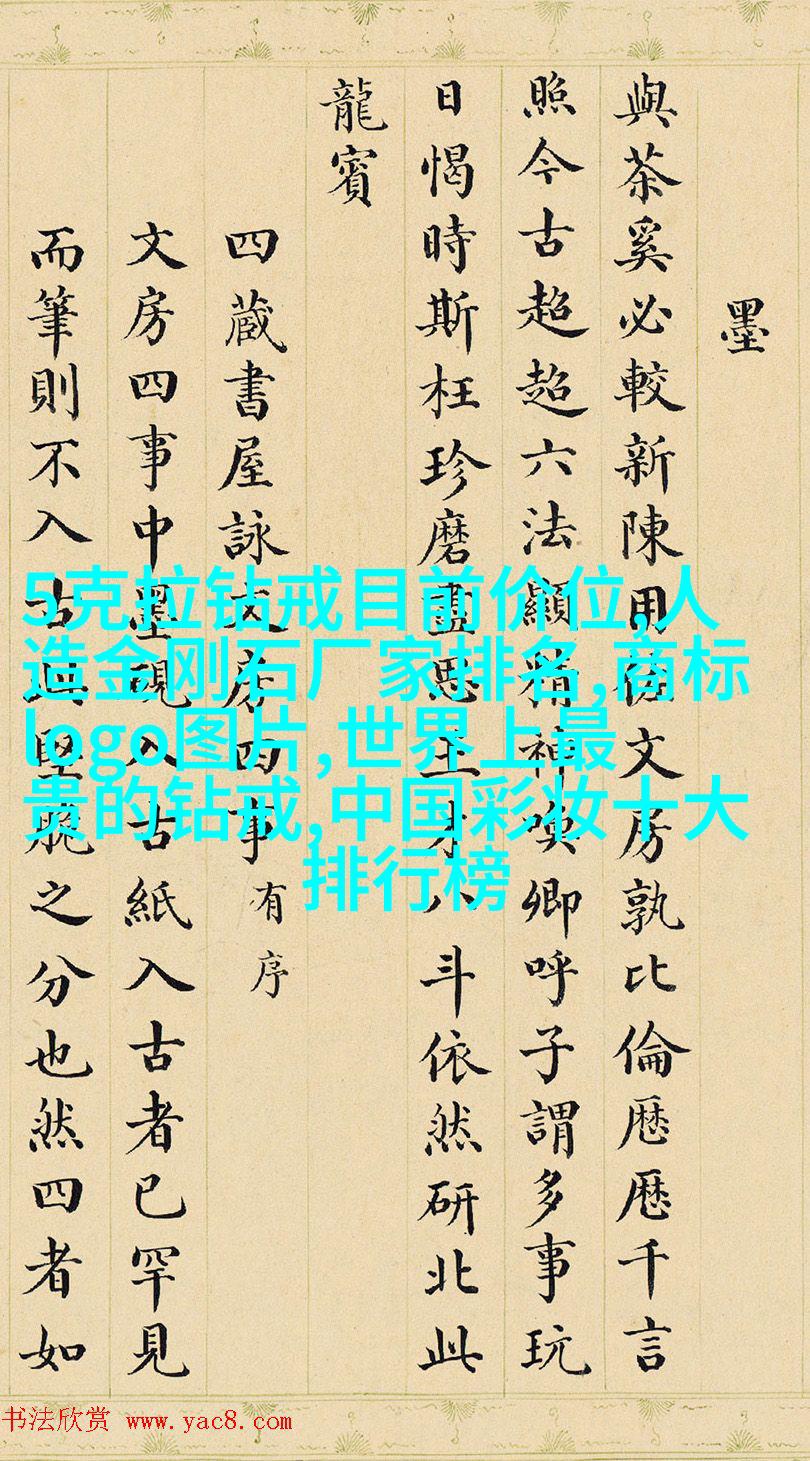 墨
與茶奚必較新陳用佐文房孰比倫厯厯千言
照今古超超六法顯精神喚卿呼子謂多事玩
日愒時斯枉珍磨盡思王才八斗依然研北此
龍賓
四蔵書屋詠文房四事有序
文房四事中墨硯入古紙入古者已罕見
而筆則不入古堅脆之分也然四者如
5克拉钻戒目前价位,人
造金刚石厂家排名,商标
logo图片,世界上最
贵的钻戒,中国彩妆十大
排行榜
书法欣赏 www.yac8.com